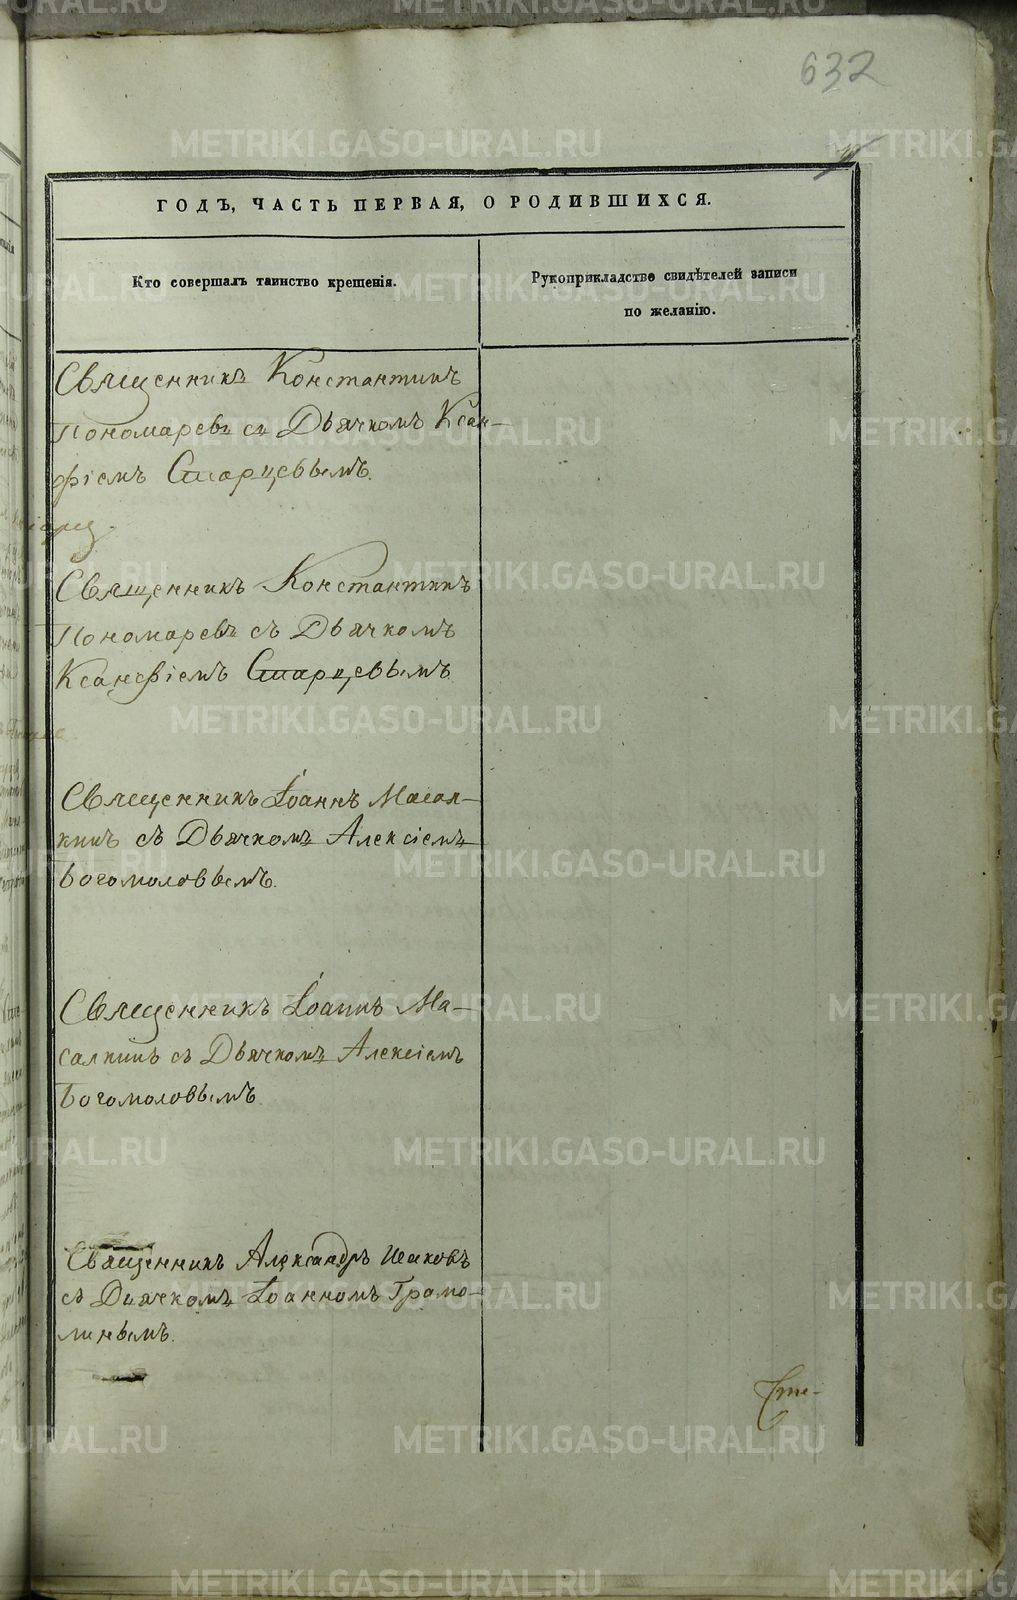 632
ГОДЪ, ЧАСТЬ ПЕРВАЯ, О РОДИВШИХСЯ.
Кто совершалъ таинство крещенія.
Рукоприкладство свидѣтелей записи
по желанію.
Священникъ Константинъ
Пономаревъ съ Дьячкомъ Ксан-
фіемъ Старцевымъ.
Священникъ Константинъ
Пономаревъ съ Дьячкомъ
Ксанѳіемъ Старцевымъ
Священникъ Іоаннъ Масал-
кинъ съ Дьячкомъ Алексіемъ
Богомоловымъ.
Священникъ Іоаннъ Ма-
салкинъ съ Дьячкомъ Алексіемъ
Богомоловымъ
Священникъ Александръ
съ Дьячкомъ Іоанномъ Грамо-
линымъ.
METRIKI.GASO-URAL.RU